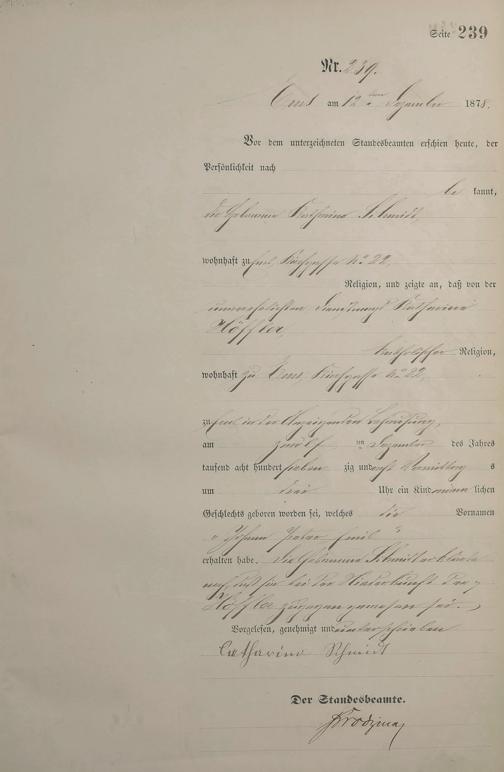 Seite 239
Nr. 239.
Ems am 12ten Dezember 1878.
Vor dem unterzeichneten Standesbeamten erschien heute, der
Persönlichkeit nach
be kannt,
die Hebamme Katharina Schmidt,
wohnhaft zu Ems, Kirchgasse No 22,
Religion, und zeigte an, daß von der
unverehelichten Dienstmagd Katharina
Höffler,
katholischer Religion,
wohnhaft zu Ems, Kirchgasse No 22,
zu Ems in der Anzeigenden Behausung,
am zwölften Dezember des Jahres
tausend acht hundert sieben zig und acht Vormittags
um drei Uhr ein Kind männ lichen
Geschlechts geboren worden sei, welches die Vornamen
"Johann Peter Emil"
erhalten habe. Die Hebamme Schmidt erklärte
noch, daß sie bei der Niederkunft der p
Höffler zugegen gewesen sei.
Vorgelesen, genehmigt und unterschrieben
Catharina Schmidt
Der Standesbeamte.